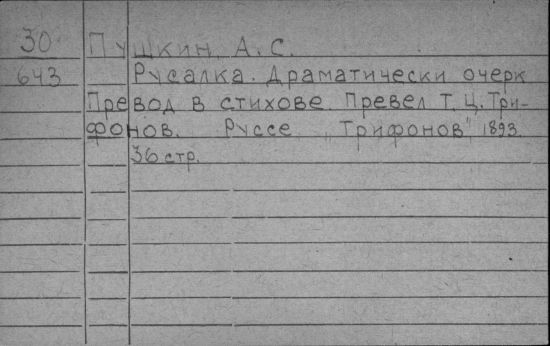 30 Пушкин, А. С.
643 Русалка. Драматически очерк
Превод в стихове. Превел Т. Ц. Три-
фонов. Руссе „Трифонов", 1893.
36 стр.